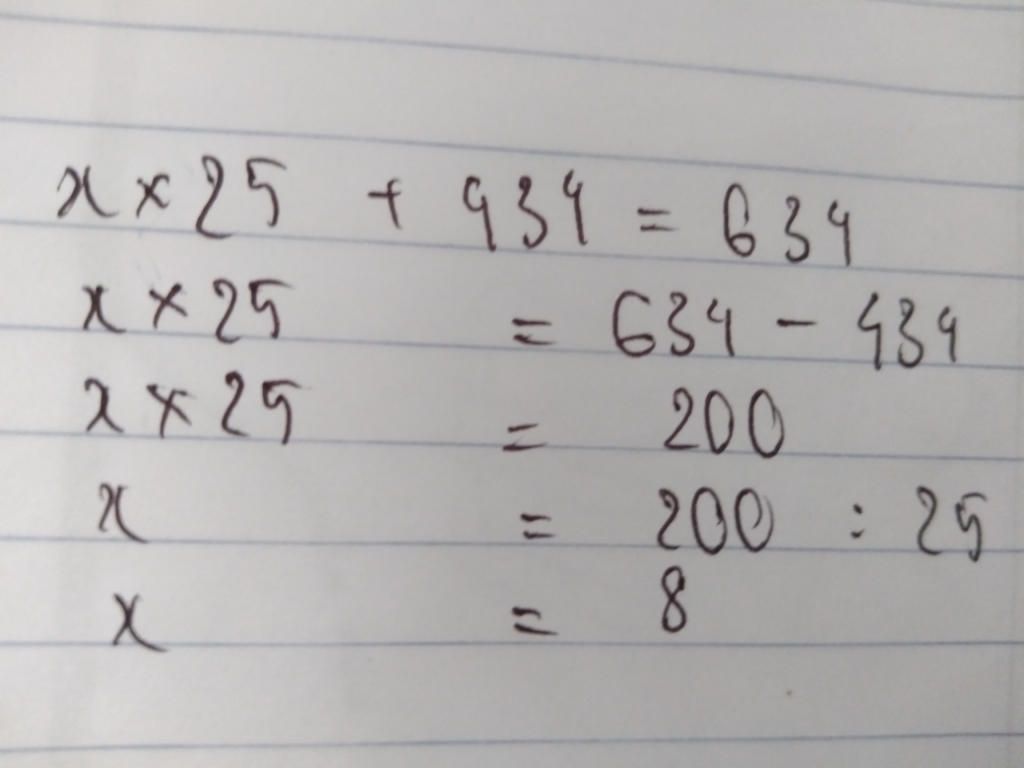 x × 25 + 434 = 634
x × 25 = 634 - 434
x × 25 = 200
x = 200 : 25
x = 8